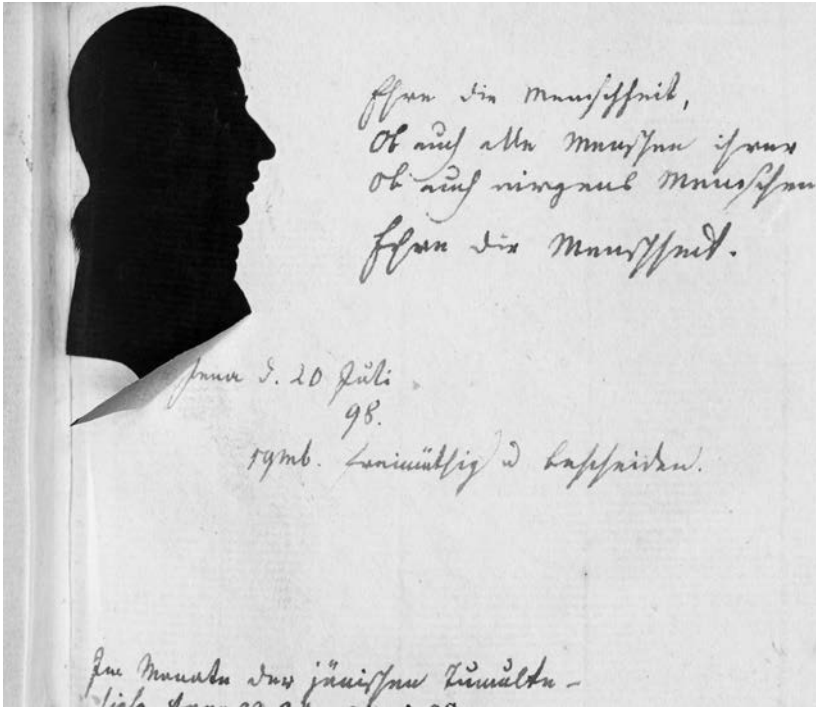 Ehre die Menschheit,
Ob auch alle Menschen ihrer
Ob auch nirgends Menschen
Ehre die Menschheit.
Jena d. 20 Juli
98.
symb. freimüthig u bescheiden.
Im Monate der jenischen Tumulte –